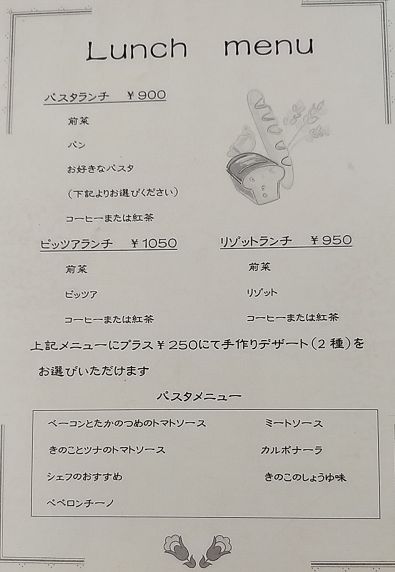 Lunch menu
パスタランチ ￥900
前菜
パン
お好きなパスタ
(下記よりお選びください)
コーヒーまたは紅茶
ピッツアランチ ￥1050
前菜
ピッツア
コーヒーまたは紅茶
リゾットランチ ￥950
前菜
リゾット
コーヒーまたは紅茶
上記メニューにプラス￥250にて手作りデザート(2種)を
お選びいただけます
パスタメニュー
ベーコンとたかのつめのトマトソース
きのことツナのトマトソース
シェフのおすすめ
ペペロンチーノ
ミートソース
カルボナーラ
きのこのしょうゆ味